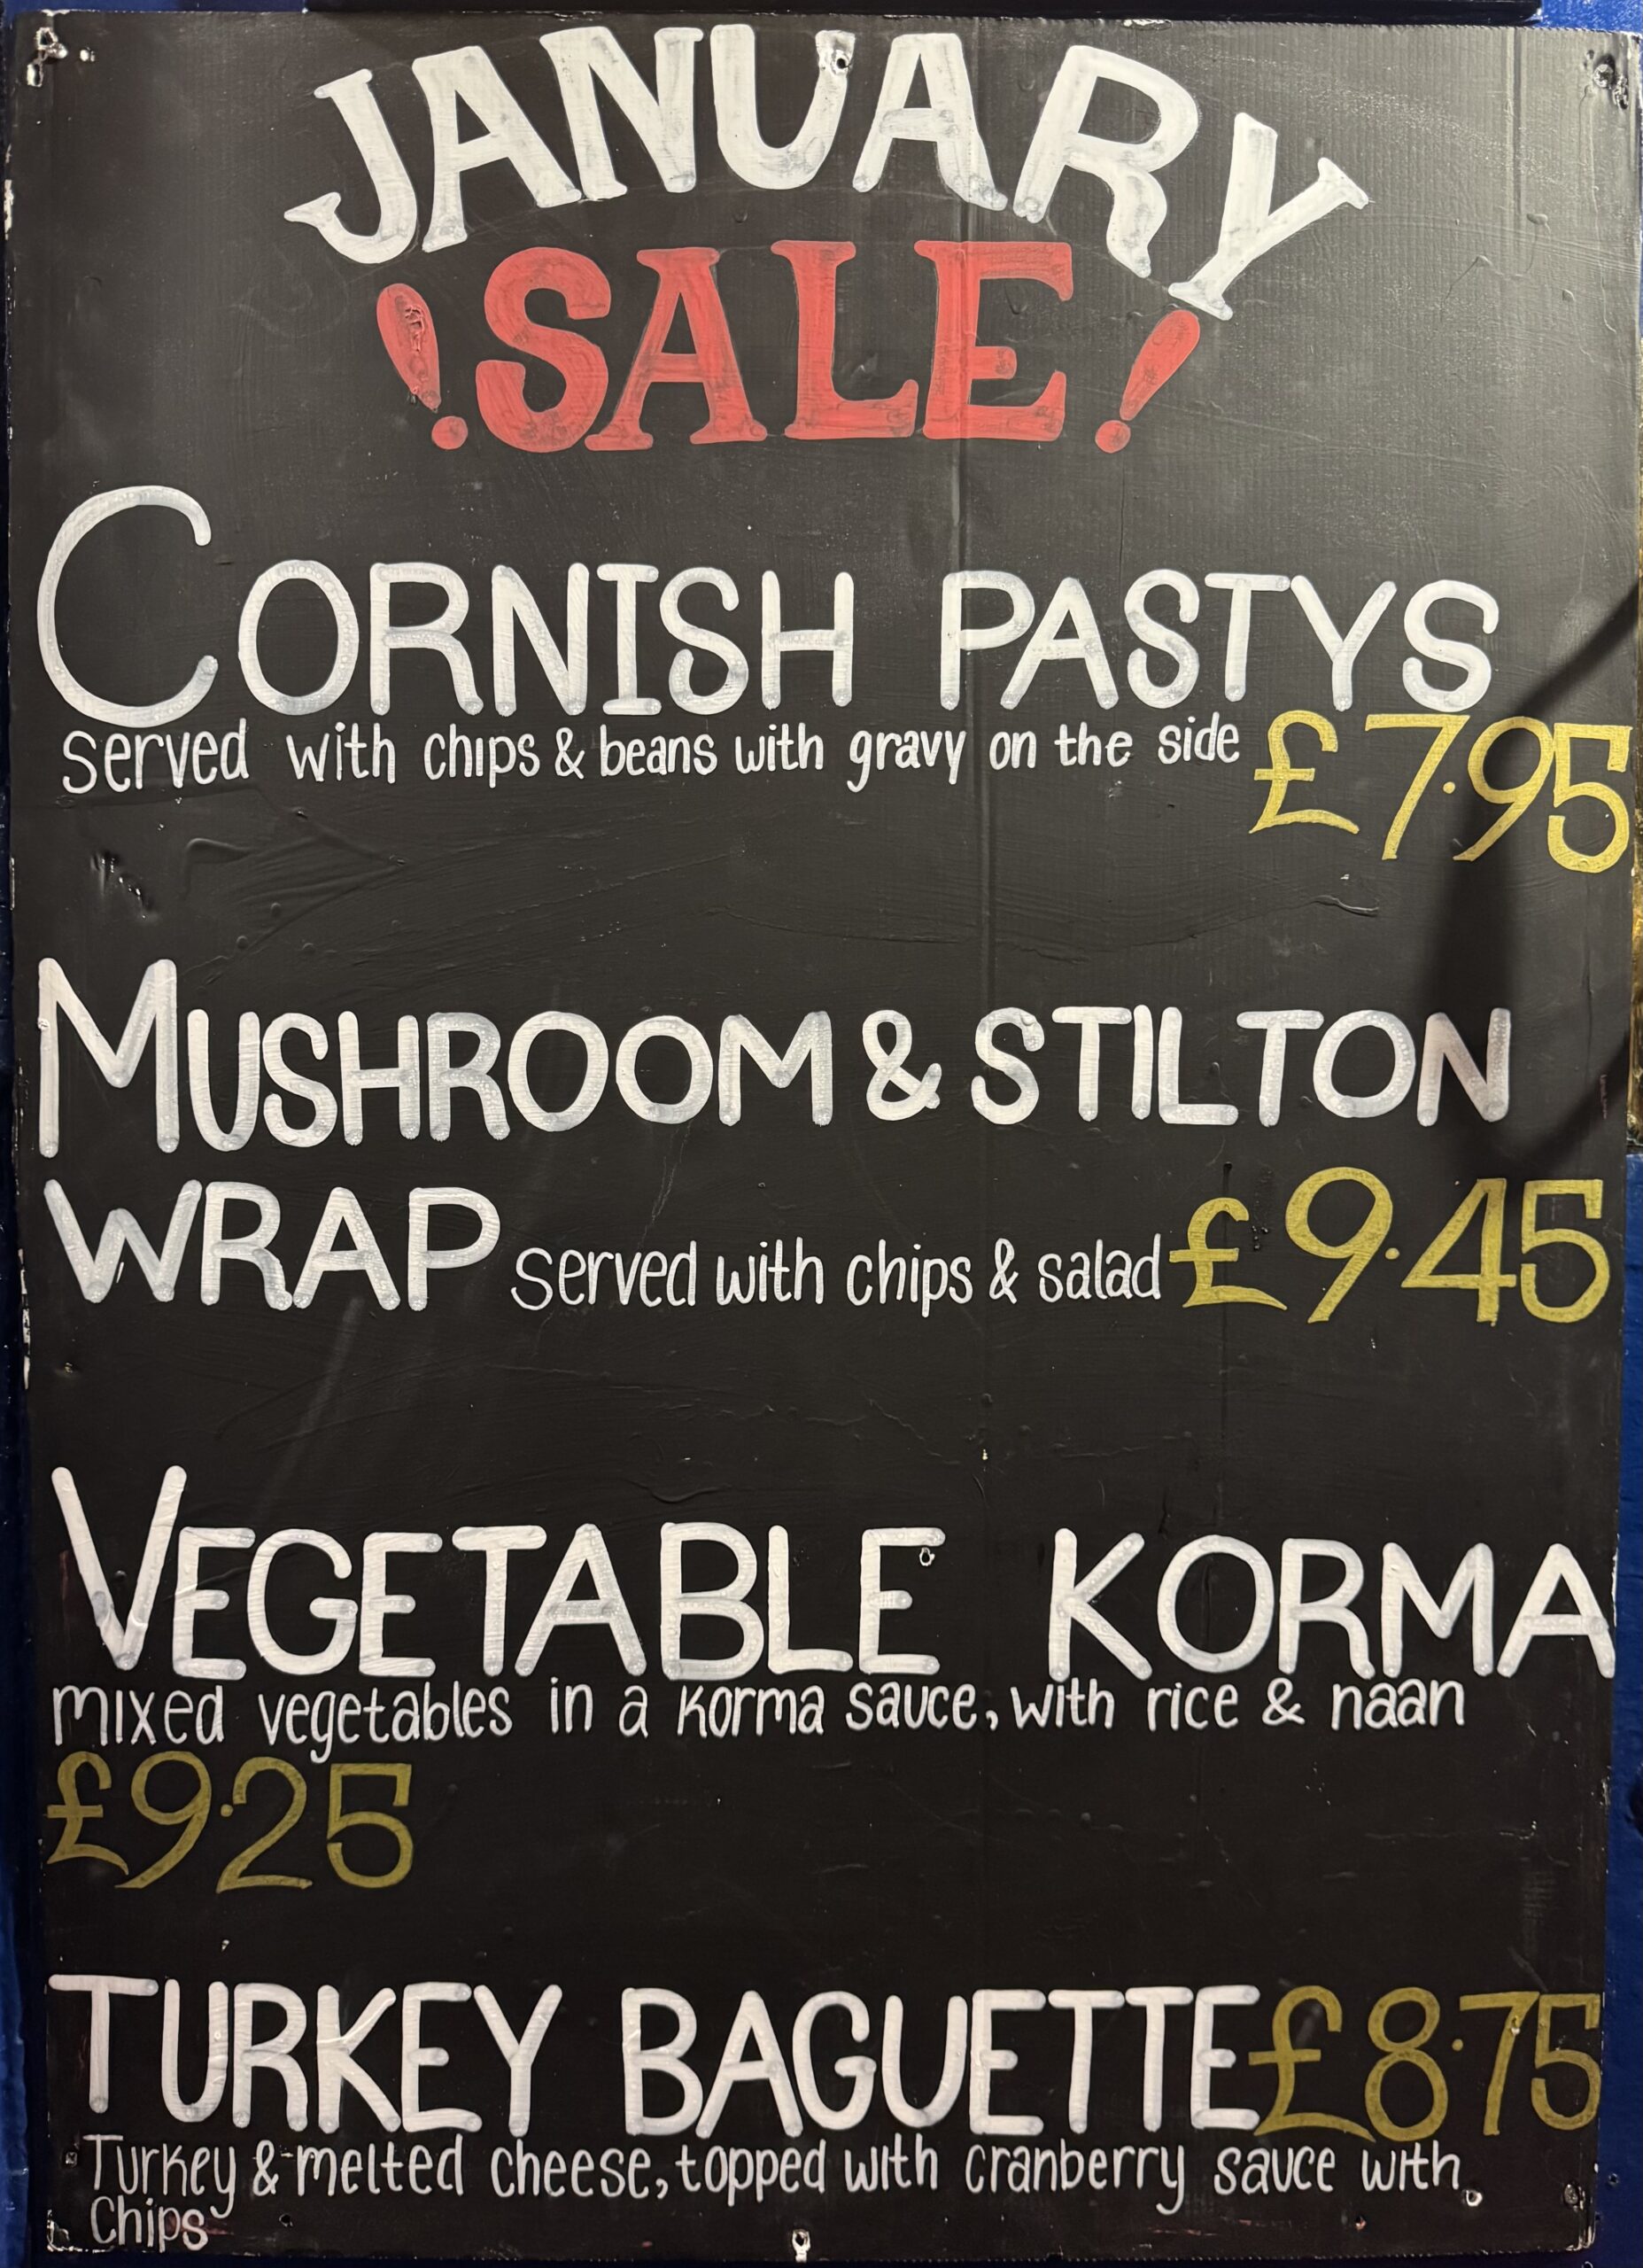 JANUARY
! SALE !
CORNISH PASTYS
served with chips & beans with gravy on the side £7.95
MUSHROOM & STILTON
WRAP served with chips & salad £9.45
VEGETABLE KORMA
mixed vegetables in a korma sauce, with rice & naan
£9.25
TURKEY BAGUETTE £8.75
Turkey & melted cheese, topped with cranberry sauce with
Chips